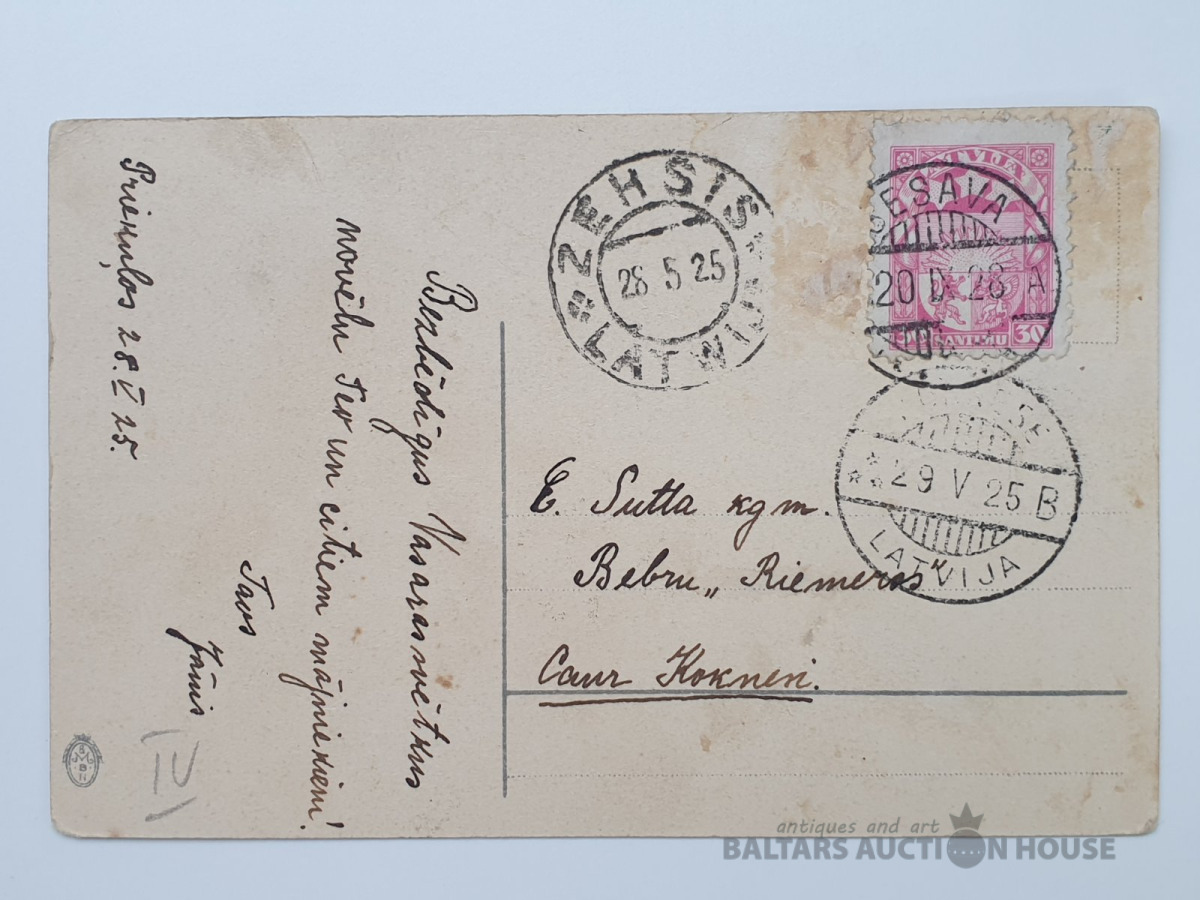 Prieviņos 28.V 25.
Bezbēdīgus Vasarassvētkus
novēlu Tev un citiem mājiniekiem!
Tavs
Jānis
E. Sutta kgm.
Bebru „ Riemeros
Caur Koknesi.
ZEHSIS
28 5 25
LATWIJA
LATVIJA
SESAVA
20 IX 28 A
30 SANTIMU 30
29 V 25 B
LATVIJA
antiques and art
BALTARS AUCTION HOUSE